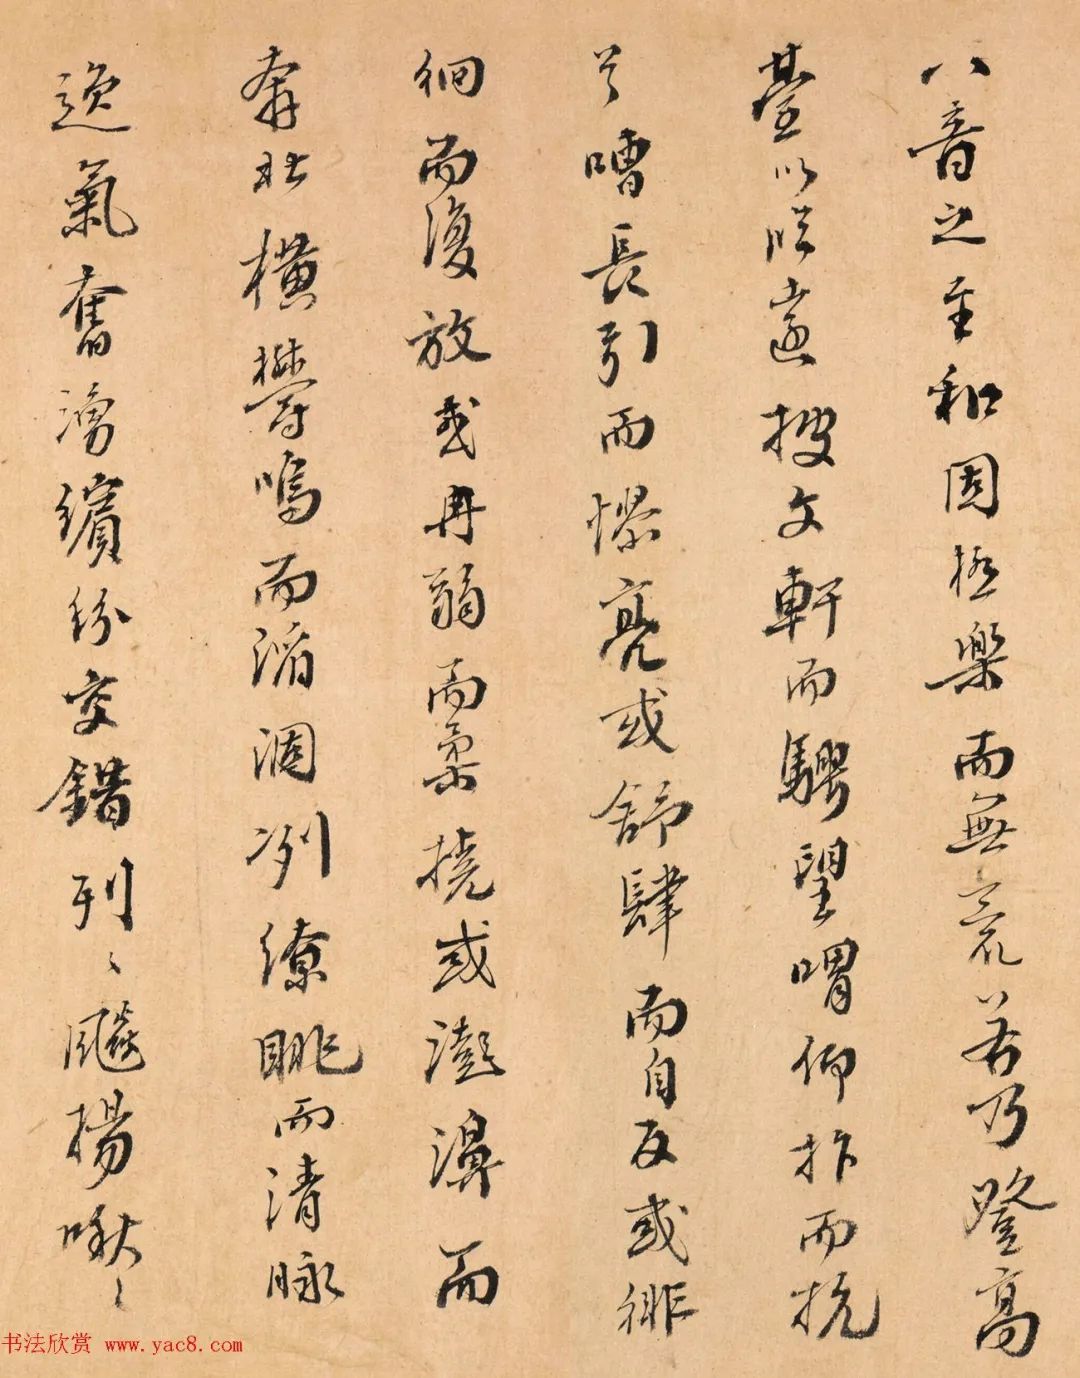 八音之至和固極樂而無荒若乃登高
臺以臨遠披文軒而騁望喟仰抃而抗
首嘈長引而憀亮或舒肆而自反或徘
徊而復放或冉弱而柔撓或澎濞而
奔壯橫鬱鳴而滔涸冽繚眺而清昶
逸氣奮湧繽紛交錯列〻飆揚啾〻
书法欣赏 www.yac8.com